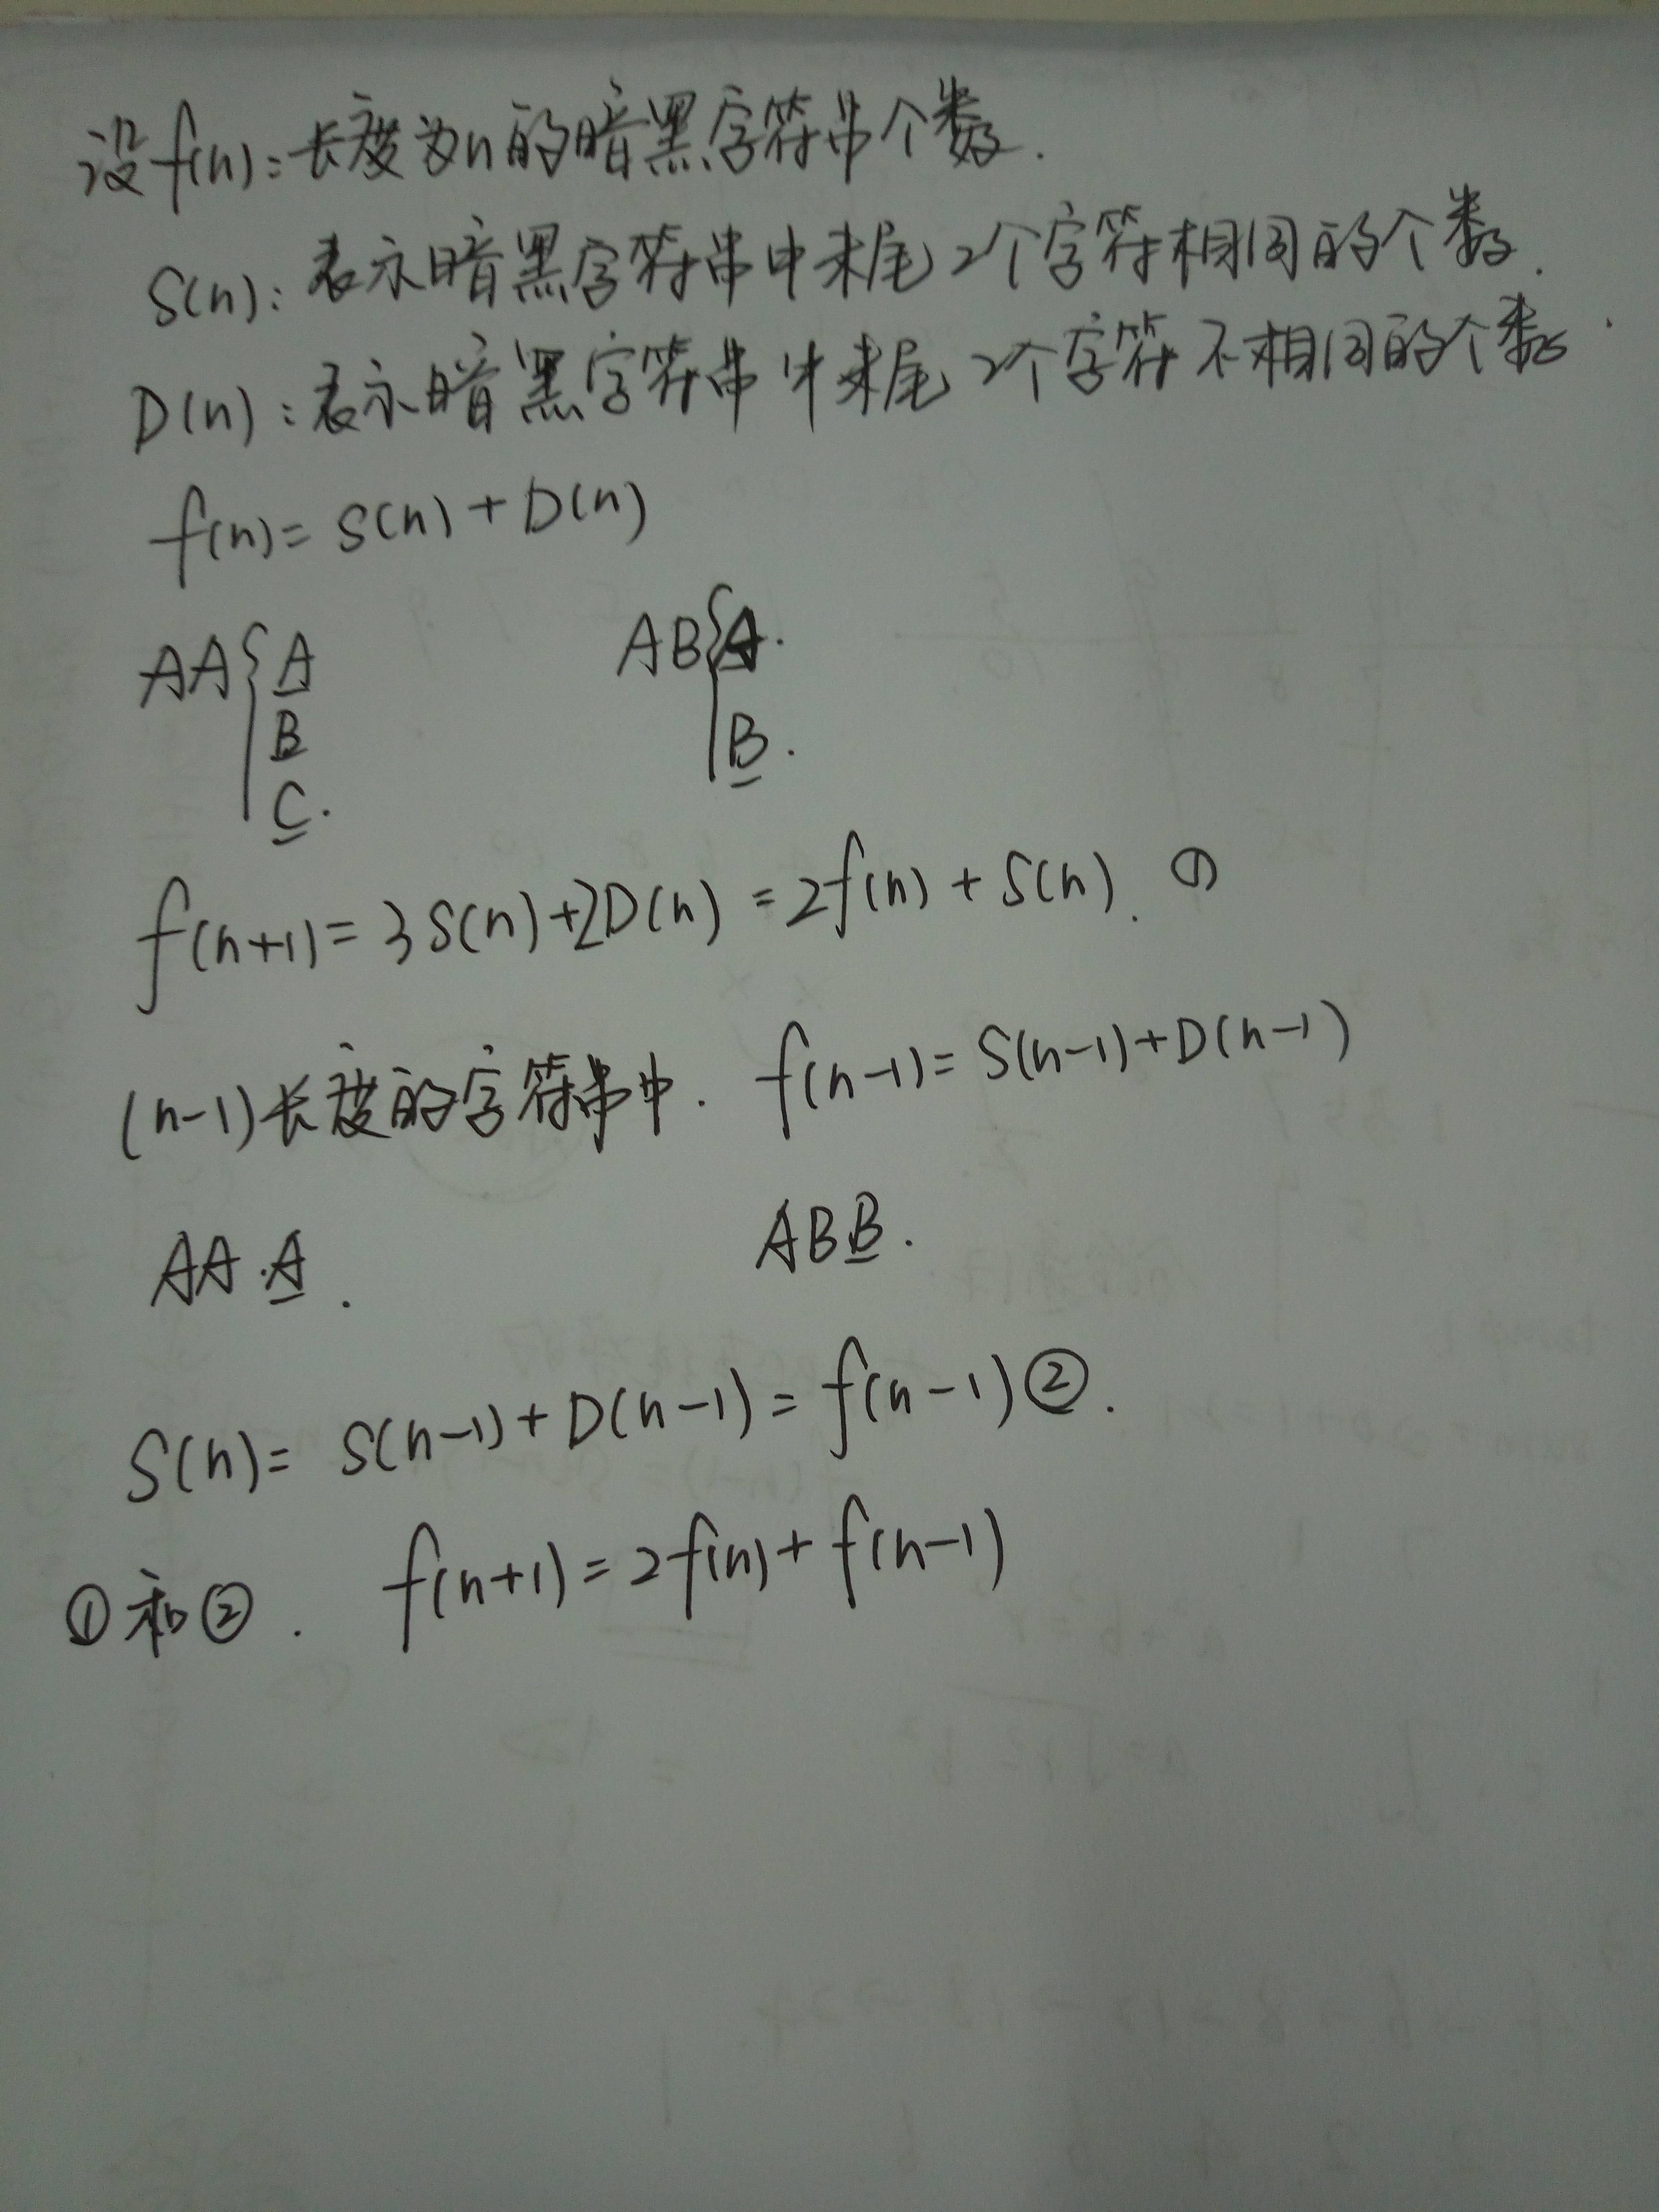 设f(n):长度为n的暗黑字符串个数.
S(n):表示暗黑字符串中末尾2个字符相同的个数.
D(n):表示暗黑字符串中末尾2个字符不相同的个数.
f(n)=S(n)+D(n)
AA{A AB{A.
B B.
C.
f(n+1)=3S(n)+2D(n)=2f(n)+S(n).①
(n-1)长度的字符串中. f(n-1)=S(n-1)+D(n-1)
AA.A. ABB.
S(n)=S(n-1)+D(n-1)=f(n-1)②.
①和②. f(n+1)=2f(n)+f(n-1)